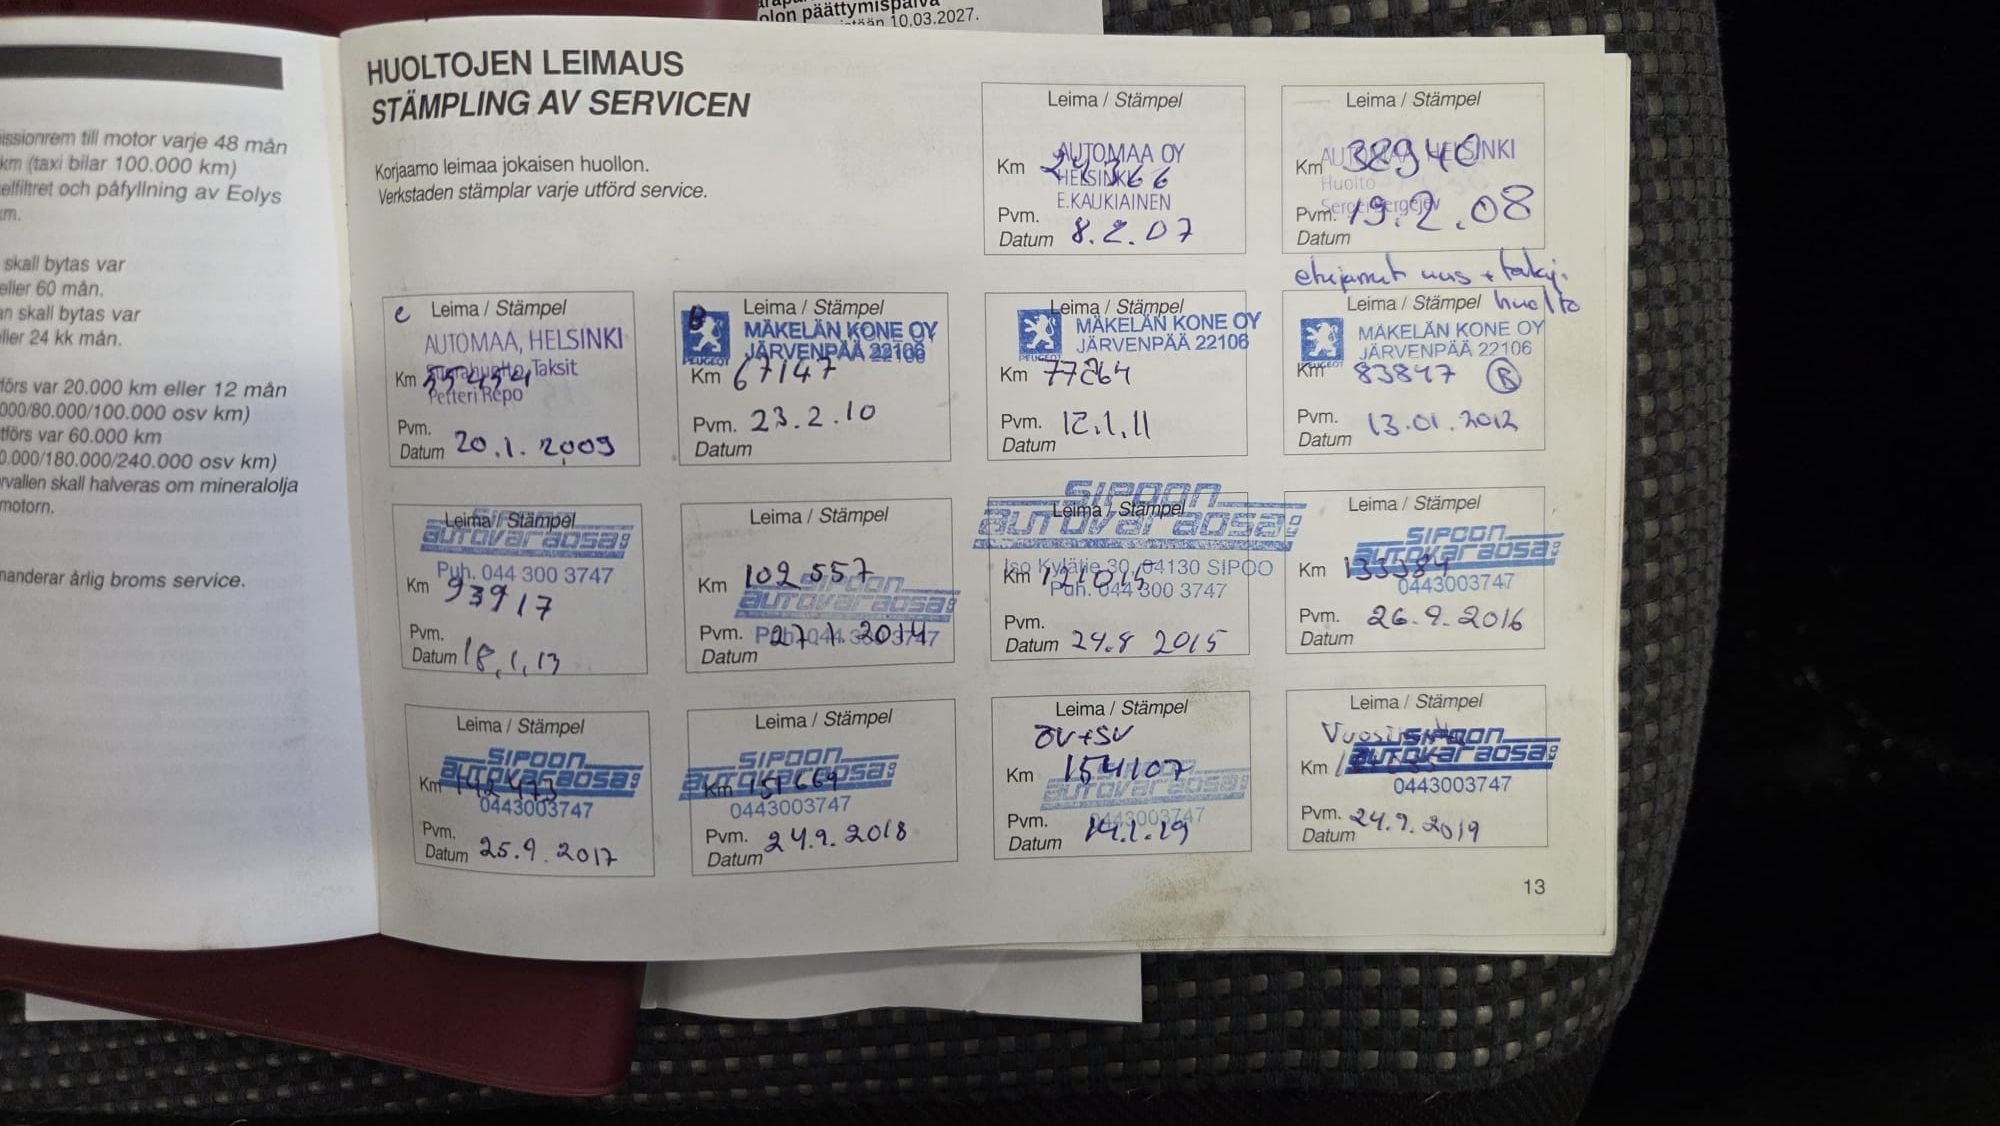 olon päättymispäivä
10.03.2027.
till motor varje 48 mån
km (taxi bilar 100.000 km)
och påfyllning av Eolys
skall bytas var
eller 60 mån.
skall bytas var
24 kk mån.
var 20.000 km eller 12 mån
000/80.000/100.000 osv km)
var 60.000 km
0.000/180.000/240.000 osv km)
skall halveras om mineralolja
motorn.
årlig broms service.
HUOLTOJEN LEIMAUS
STÄMPLING AV SERVICEN
Korjaamo leimaa jokaisen huollon.
Verkstaden stämplar varje utförd service.
Leima / Stämpel
AUTOMAA OY
HELSINKI
E.KAUKIAINEN
Km
Pvm.
Datum 8.2.07
Leima / Stämpel
AUTOMAA, HELSINKI
Huolto
Km 38940
Pvm. 19.2.08
Datum
huolto
e Leima / Stämpel
AUTOMAA, HELSINKI
Taksit
Petteri Repo
Km
Pvm.
Datum 20.1.2009
B Leima / Stämpel
PEUGEOT
MÄKELÄN KONE OY
JÄRVENPÄÄ 22106
Km 67147
Pvm. 23.2.10
Datum
Leima / Stämpel
PEUGEOT
MÄKELÄN KONE OY
JÄRVENPÄÄ 22106
Km 77264
Pvm. 12.1.11
Datum
Leima / Stämpel
PEUGEOT
MÄKELÄN KONE OY
JÄRVENPÄÄ 22106
Km 83847 B
Pvm. 13.01.2012
Datum
Leima / Stämpel
SIPOON
autovaraosa
Puh. 044 300 3747
Km 93917
Pvm.
Datum 18.1.13
Leima / Stämpel
Km 102557
SIPOON
autovaraosa
Puh. 044 300 3747
Pvm.
Datum
SIPOON
autovaraosa
Leima / Stämpel
Iso Kylätie 30, 04130 SIPOO
Puh. 044 300 3747
Km
Pvm.
Datum 24.8 2015
Leima / Stämpel
SIPOON
autovaraosa
0443003747
Km 133384
Pvm. 26.9.2016
Datum
Leima / Stämpel
SIPOON
autovaraosa
0443003747
Km 142473
Pvm.
Datum 25.9.2017
Leima / Stämpel
SIPOON
autovaraosa
0443003747
Km 151669
Pvm. 24.9.2018
Datum
Leima / Stämpel
ÖV+SV
Km 154107
autovaraosa
0443003747
Pvm. 14.1.19
Datum
Leima / Stämpel
SIPOON
autovaraosa
0443003747
Km
Pvm. 24.9.2019
Datum
13